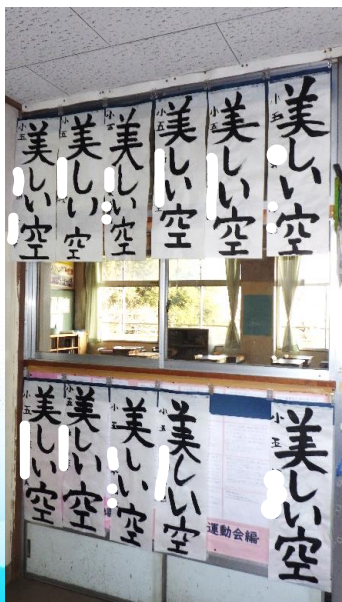 美しい空
小五
美しい空
小五
美しい空
小五
美しい空
小五
美しい空
小五
美しい空
小五
美しい空
小五
美しい空
小五
美しい空
小五
美しい空
小五
美しい空
小五
運動会編